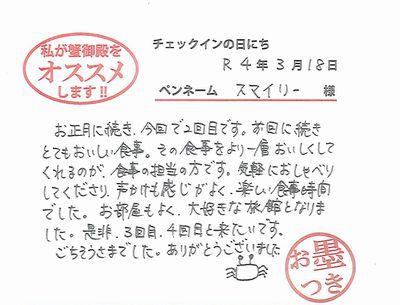 私が蟹御殿を
オススメ
します!!
チェックインの日にち
R4年3月18日
ペンネーム スマイリー 様
お正月に続き、今回で2回目です。前回に続き
とてもおいしい食事。その食事をより一層おいしくして
くれるのが、食事の担当の方です。気軽におしゃべり
してくださり、声かけも感じがよく、楽しい食事時間
でした。お部屋もよく、大好きな旅館となりま
した。是非、3回目、4回目と来たいです。
ごちそうさまでした。ありがとうございました
お墨
つき